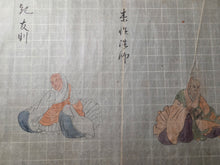 素性法師
紀友則